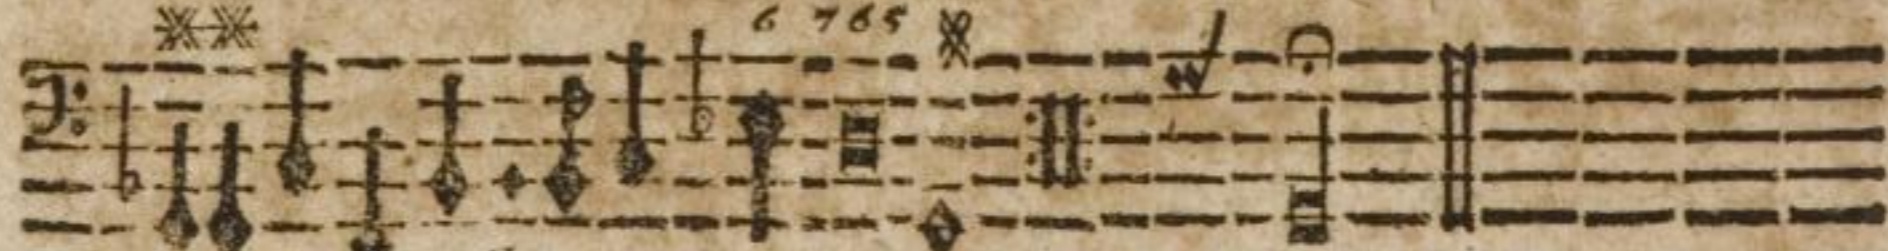 6 7 6 5